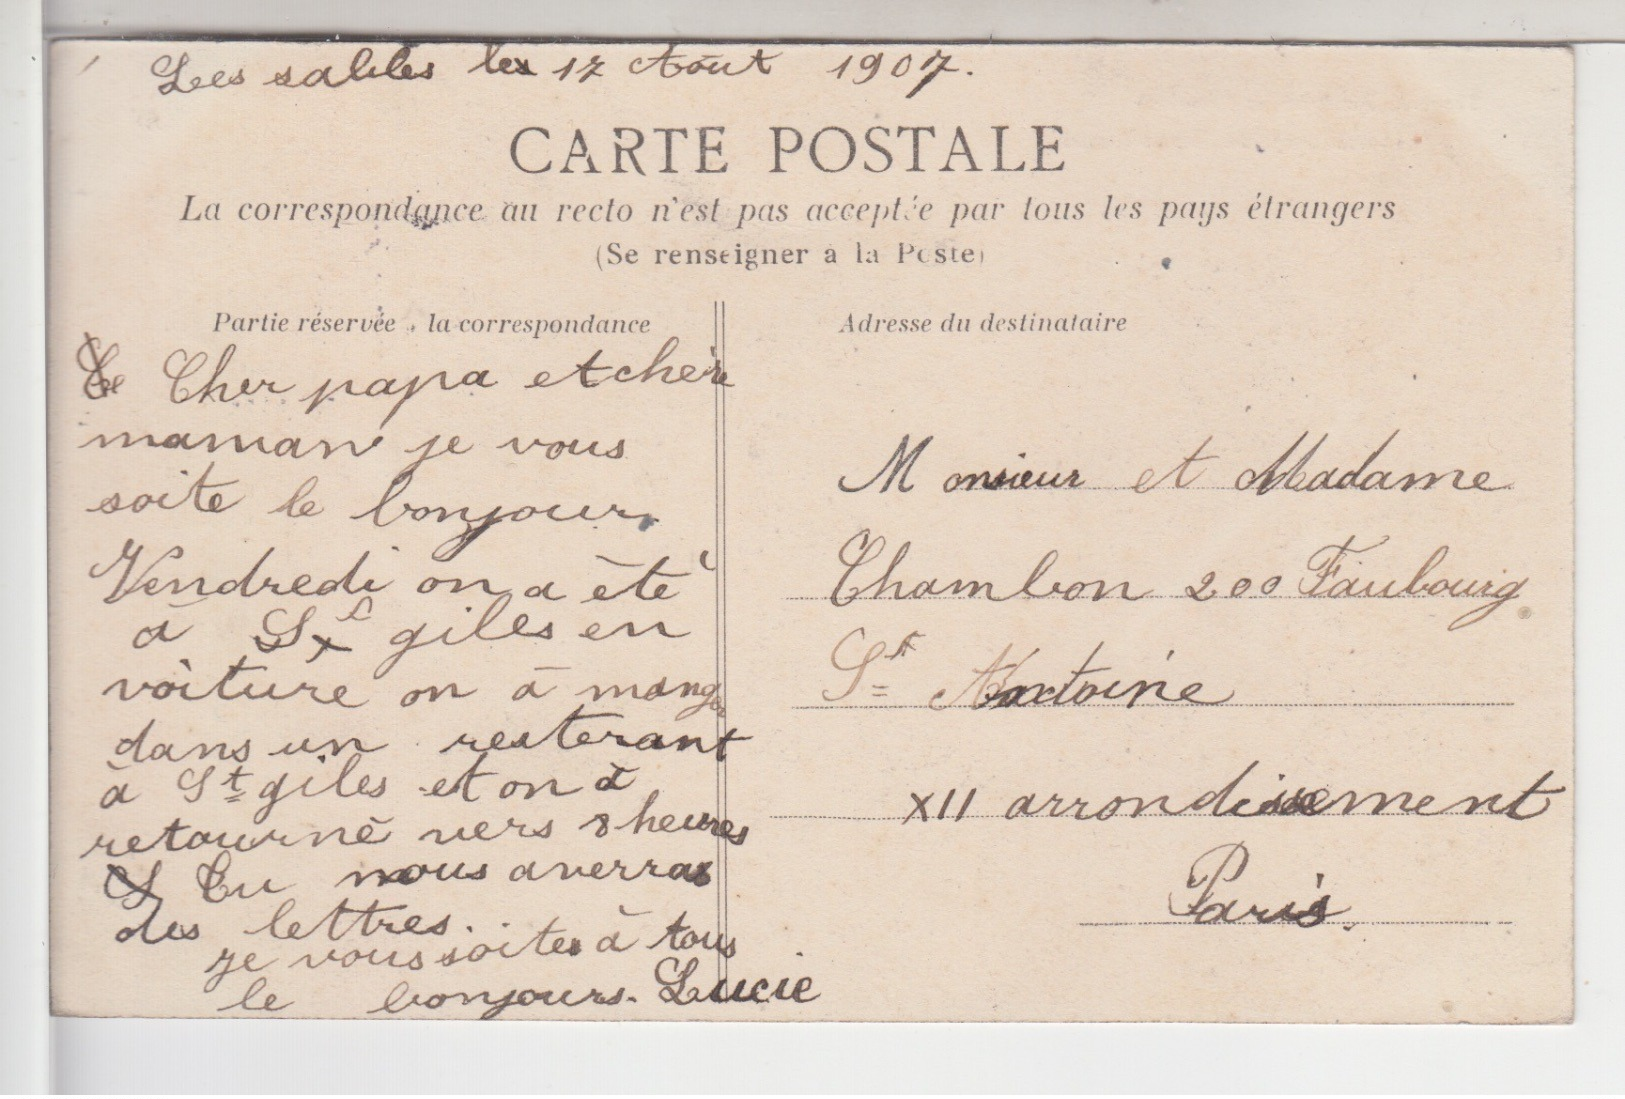 Les sables les 17 Août 1907.
CARTE POSTALE
La correspondance au recto n'est pas acceptée par tous les pays étrangers
(Se renseigner à la Poste)
Partie réservée à la correspondance
Adresse du destinataire
Cher papa et chère
maman je vous
soite le bonjour.
Vendredi on a été
à St giles en
voiture on à mangé
dans un resterant
à St giles et on à
retourné vers 8 heures
tu nous averras
des lettres.
je vous soites à tous
le bonjours. Lucie
Monsieur et Madame
Chambon 200 Faubourg
St Antoine
XII arrondissement
Paris.